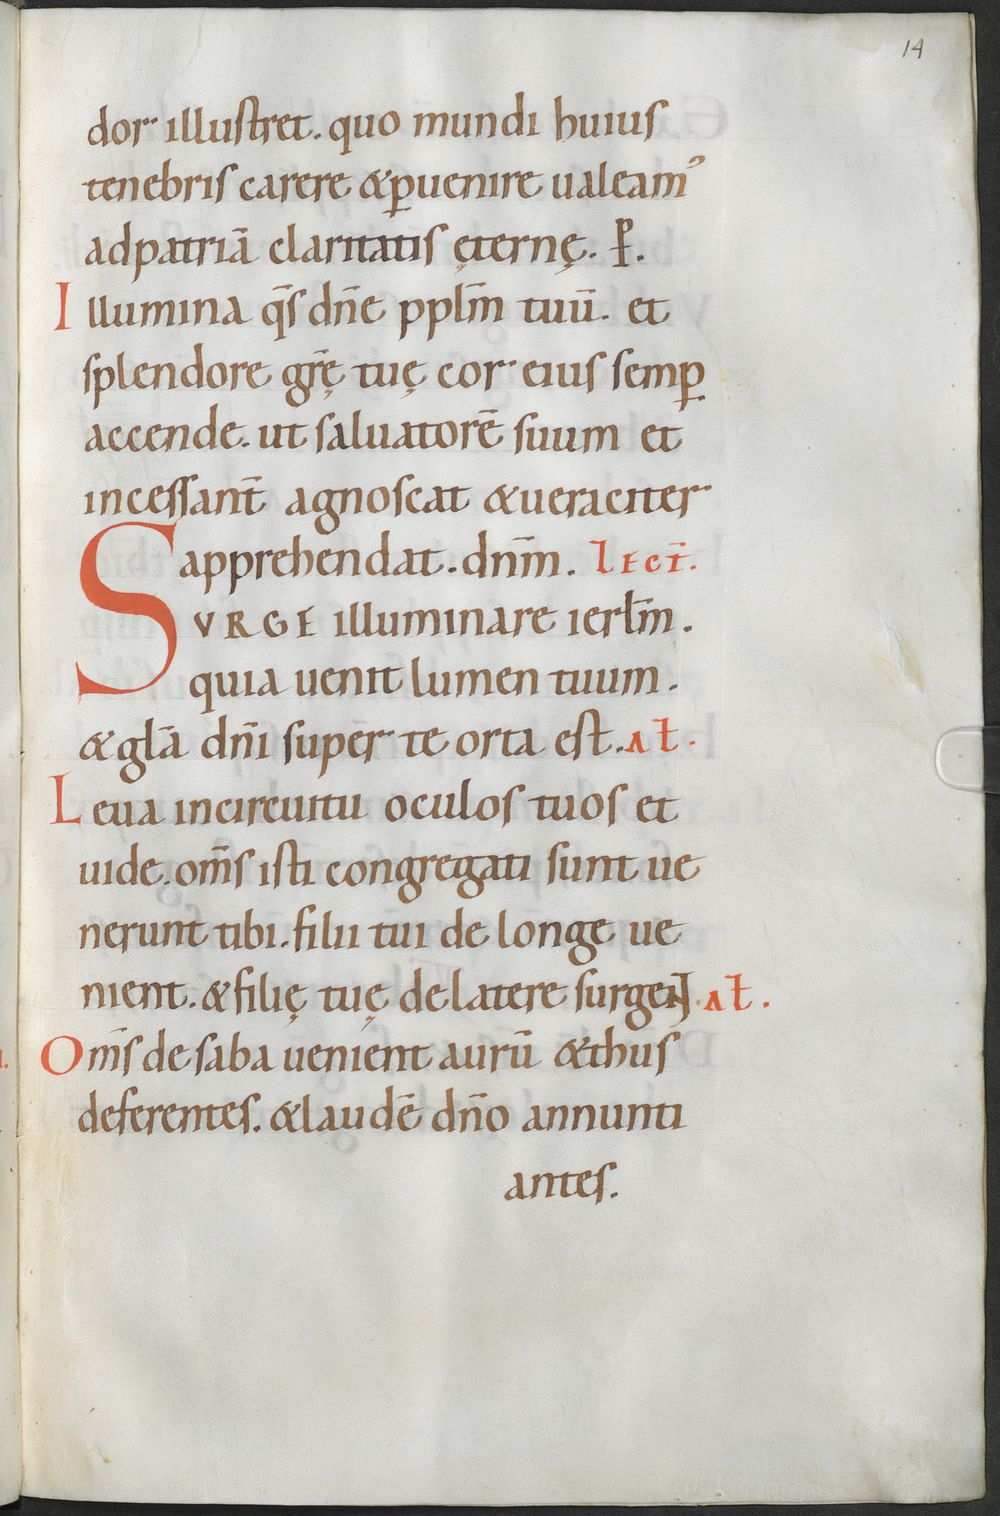 14
dor illustret. quo mundi huius
tenebris carere &ꝑuenire ualeamꝰ
adpatriā claritatis ęternę. ꝑ.
Illumina q̄s dn̄e ppl̄m tuū. et
splendore gr̄ę tuę cor eius semꝑ
accende. ut saluatorē suum et
incessant̄ agnoscat &ueraciter
apprehendat. dn̄m. Lect̄.
SVRGE illuminare ierl̄m.
quia uenit lumen tuum.
&gl̄a dn̄i super te orta est. Al̄.
Leua incircuitu oculos tuos et
uide. om̄s isti congregati sunt ue
nerunt tibi. filii tui de longe ue
nient. &filię tuę delatere surgent. Al̄.
Om̄s desaba uenient aurū &thus
deferentes. &laudē dn̄o annunti
antes.